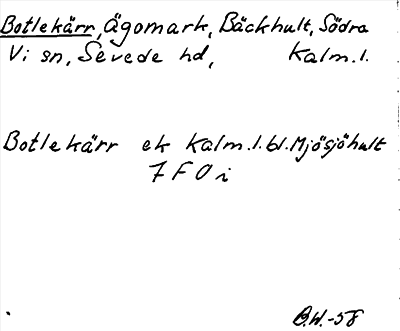 Botlekärr, Ägomark, Bäckhult, Södra
Vi sn, Sevede hd, Kalm. l.
Botlekärr ek Kalm. l. bl. Mjösjöhult
7 F 0 i
B.W.-58